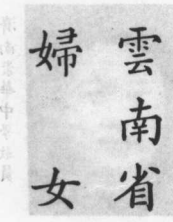 雲南省
婦女